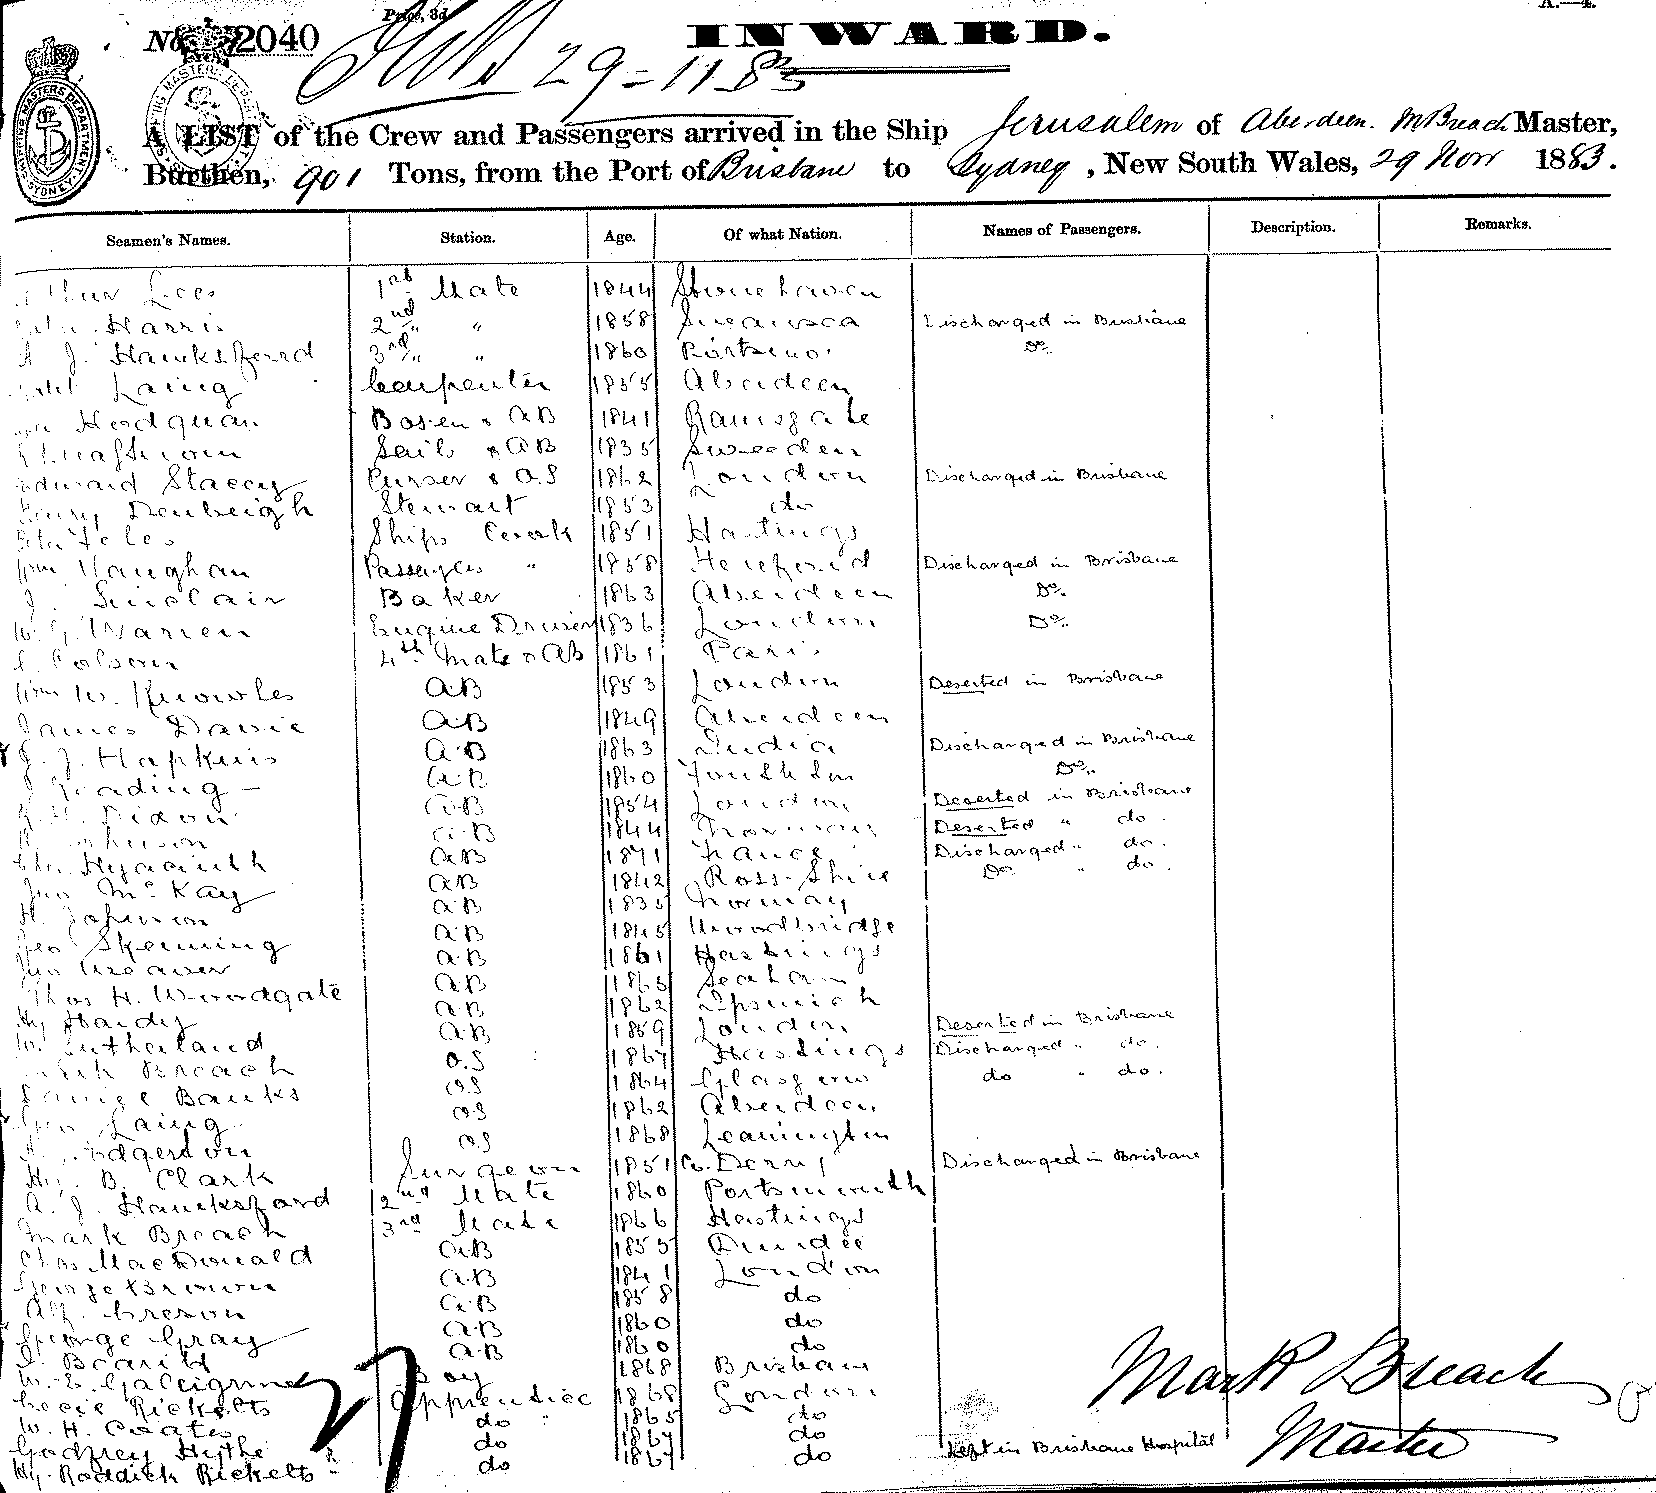 Price, 3d
A.—4.
No. 2040 INWARD.
29-11-83
A LIST of the Crew and Passengers arrived in the Ship Jerusalem of Aberdeen. M Breach Master,
Burthen, 901 Tons, from the Port of Brisbane to Sydney, New South Wales, 29 Nov 1883.
Seamen's Names. Station. Age. Of what Nation. Names of Passengers. Description. Remarks.
Lees 1st Mate 1844 Stonehaven
Harris 2nd " " 1858 Swansea Discharged in Brisbane
J. Hawksford 3rd " " 1860 Do.
Laing Carpenter 1855 Aberdeen
Bosen & AB 1841 Ramsgate
Sails & AB 1835 Sweeden
Edward Stacey & OS 1862 London Discharged in Brisbane
Henry Denbeigh Stewart 1853 do
Ships Cook 1851 Hastings
Wm Vaughan Passengers " 1858 Hereford Discharged in Brisbane
J. Sinclair Baker 1863 Aberdeen Do.
W. G. Warren Engine Driver 1836 London Do.
Colson 4th Mate & AB 1861 Paris
Wm W. Knowles AB 1853 London Deserted in Brisbane
James Davie AB 1849 Aberdeen
J. J. Hopkins AB 1863 India Discharged in Brisbane
AB 1860 Do.
Dixon AB 1854 London Deserted in Brisbane
AB 1844 Norway Deserted " do.
Hyacinth AB 1871 France Discharged " do.
Jno McKay AB 1842 Ross-Shire Do " do.
H. Johnson AB 1835 Norway
Geo Skenning AB 1845 Woodbridge
Jno Weaver AB 1861 Hastings
Thos H. Woodgate AB 1865 Seaham
Hy Hardy AB 1862 Ipswich
W. Sutherland AB 1859 London Deserted in Brisbane
Breach O.S 1867 Hastings Discharged " do.
George Banks OS 1864 Glasgow do " do.
Geo Laing OS 1862 Aberdeen
OS 1868 Leamington
Hy. B. Clark Surgeon 1851 Co. Derry Discharged in Brisbane
A. J. Hawksford 2nd Mate 1860 Portsmouth
Mark Breach 3rd Mate 1866 Hastings
Chas MacDonald AB 1855 Dundee
George Brown AB 1841 London
Alf. AB 1858 do
George Gray AB 1860 do
AB 1860 do
Boy 1868 Brisbane
Ricketts Apprentice 1868 London
W. H. Coates do " 1865 do
Godfrey Hythe do 1867 do
Hy. Roddick Ricketts do 1867 do Left in Brisbane Hospital
Mark Breach
Master